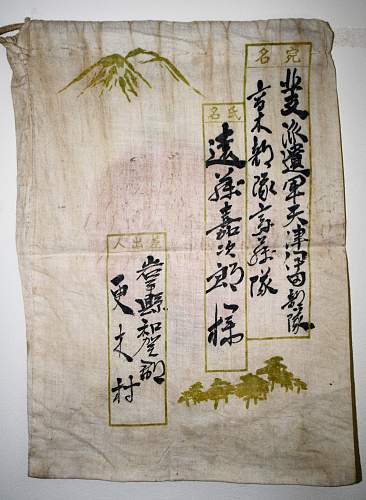 宛名
北支派遣軍天津田部隊
木部隊藤隊
氏名
遠藤嘉次郎様
差出人
岩手縣和賀郡
更木村